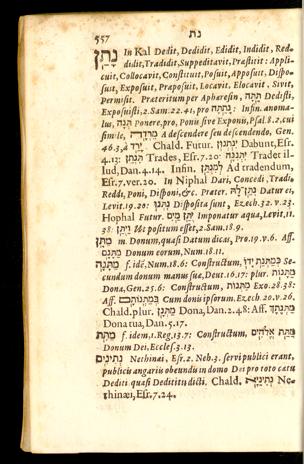 557
נת
נָתַן In Kal Dedit, Dedidit, Edidit, Indidit, Red-
didit, Tradidit, Suppeditavit, Præstitit: Appli-
cuit, Collocavit, Constituit, Posuit, Apposuit, Dispo-
suit, Exposuit, Præposuit, Locavit, Elocavit, Sivit,
Permisit. Præteritum per Aphæresin, תַּתָּה Dedisti,
Exposuisti, 2. Sam. 22. 41, pro נָתַתָּה: Infin. anoma-
lus, Ponere, pro, Poni sive Exponi, Psal. 8. 2, cui
simile, A descendere seu descendendo, Gen.
46. 3, à יָרַד Chald. Futur. יִנְתְּנוּן Dabunt, Esr.
4. 13: Trades, Esr. 7. 20: Tradet il-
lud, Dan. 4. 14. Infin. לְמִנְתַּן Ad tradendum,
Esr. 7. ver. 20. In Niphal Dari, Concedi, Tradi,
Reddi, Poni, Disponi, &c. Præter. Datur ei,
Levit. 19. 20: Disposita sunt, Ezech. 32. v. 23.
Hophal Futur. יֻתַּן מַיִם Imponatur aqua, Levit. 11.
38: Ut positum esset, 2. Sam. 18. 9.
מַתָּן m. Donum, quasi Datum dicas, Pro. 19. v. 6. Aff.
Donum eorum, Num. 18. 11.
מַתָּנָה f. idē, Num. 18. 6: Constructum, כְּמַתְּנַת יָדוֹ Se-
cundum donum manus suæ, Deut. 16. 17: plur. מַתָּנוֹת
Dona, Gen. 25. 6: Constructum, מַתְּנוֹת Exo. 28. 38:
Aff. Cum donis ipsorum, Ezech. 20. v. 26.
Chald. plur. מַתְּנָן Dona, Dan. 2. 48: Aff. מַתְּנָתָךְ
Dona tua, Dan. 5. 17.
מַתַּת f. idem, 1. Reg. 13. 7: Constructum, מַתַּת אֱלֹהִים
Donum Dei, Eccles. 3. 13.
נְתִינִים Nethinæi, Esr. 2. Neh. 3. servi publici erant,
publicis angariis obeundis in domo Dei pro toto cætu
Dediti quasi Dedititii dicti. Chald. נְתִינַיָּא Ne-
thinæi, Esr. 7. 24.